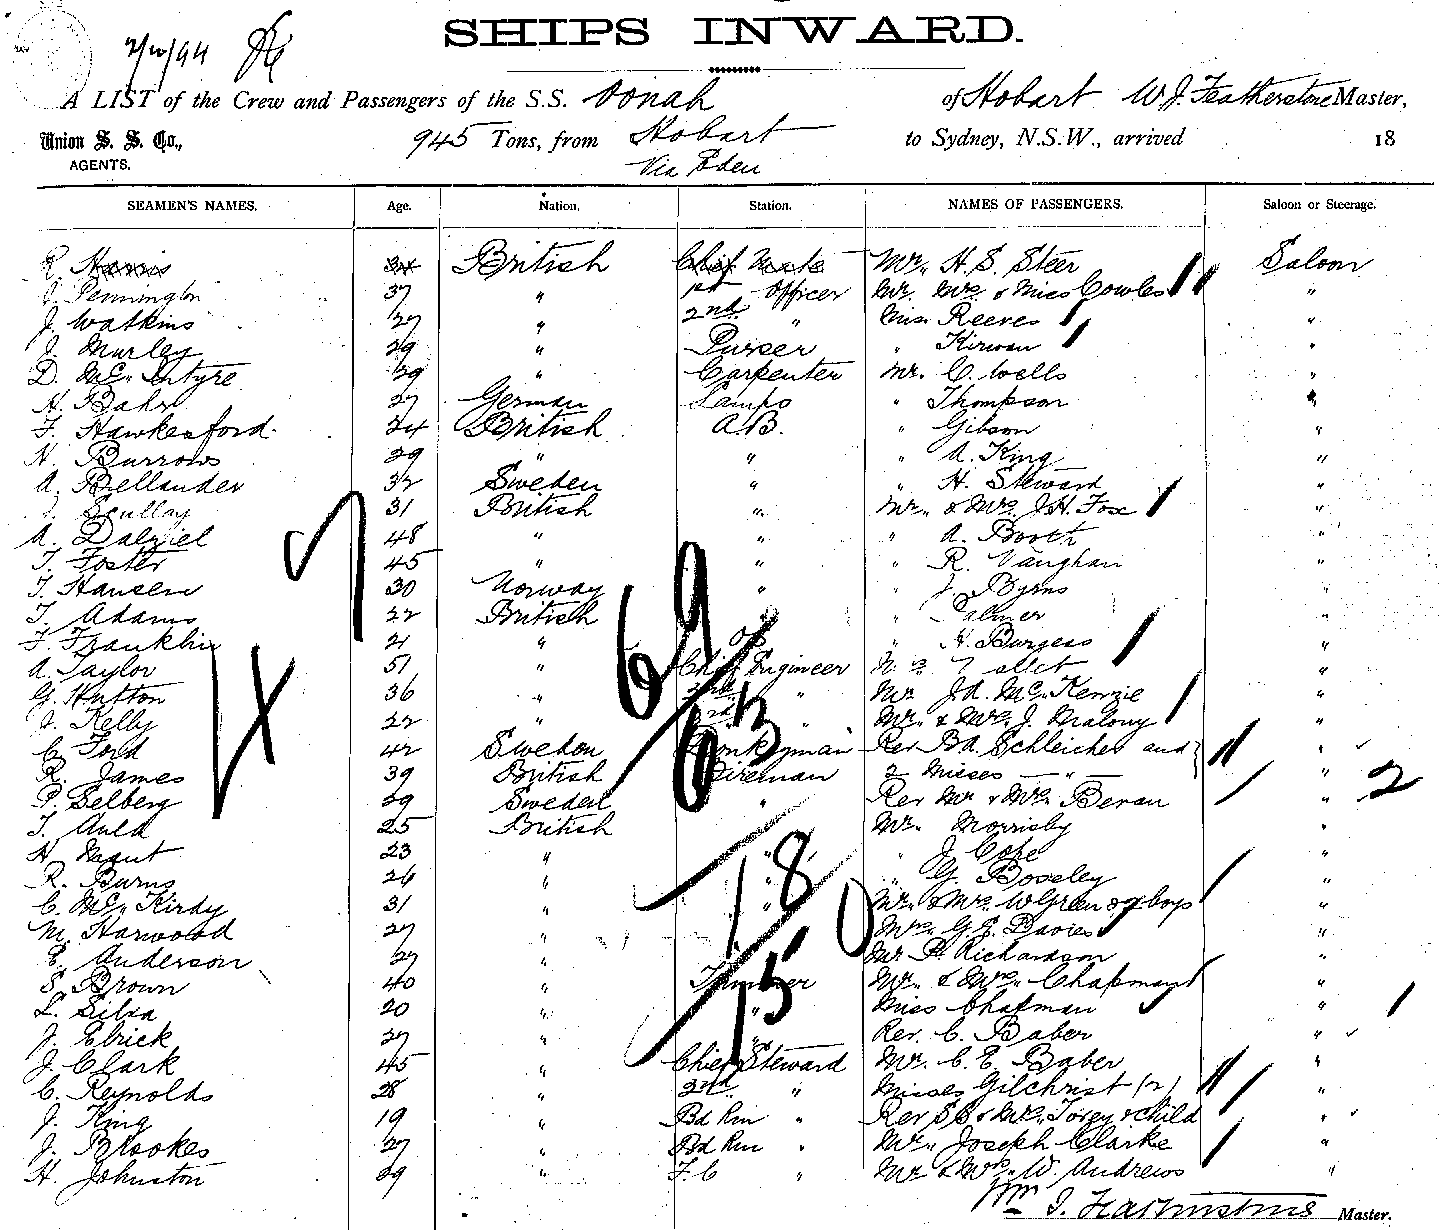 SHIPS INWARD.
A LIST of the Crew and Passengers of the S.S. Oonah of Hobart W J. Featherstone Master,
Union S. S. Co., 945 Tons, from Hobart to Sydney, N.S.W., arrived 18
AGENTS. Via Eden
SEAMEN'S NAMES. Age. Nation. Station. NAMES OF PASSENGERS. Saloon or Steerage.
R. Harris 34 British Chief Mate Mr. H. S. Steer Saloon
J. Pennington 37 " 1st Officer Mr. Mrs & Miss Cowles "
J. Watkins 27 " 2nd " Miss Reeves "
J. Murley 29 " Purser " Kirwan "
D. Mc. Intyre 39 " Carpenter Mr. C. Wells "
H. Bahr 27 German Lamps " Thompson "
F. Hawkesford 24 British A.B. " Gibson "
H. Burrows 29 " " " A. King "
A. Bellander 32 Sweden " " H. Steward "
J. Scullay 31 British " Mr. & Mrs J.H. Fox "
A. Dalziel 48 " " " A. Booth "
T. Foster 45 " " " R. Vaughan "
T. Hansen 30 Norway " " J. Byrns "
T. Adams 22 British " " Palmer "
F. Franklin 21 " OS " H. Burgess "
A. Taylor 51 " Chief Engineer "
G. Hutton 36 " 2nd " Mr J.A. Mc. Kenzie "
J. Kelly 22 " 3rd " Mr. & Mrs. J. Malony "
C. Ford 42 Sweden Donkeyman Rev. B.A. Schleicher and "
R. James 39 British Fireman 2 Misses " " 2
P. Selberg 39 Sweden " Rev Mr & Mrs. Bevan "
T. Auld 25 British Mr. Morrisby "
H. Maut 23 " " " J. Cope "
R. Burns 26 " " " G. Boseley "
C. Mc. Kirdy 31 " " Mr. & Mrs. W Green & boys "
M. Harwood 27 " Mrs. G.E. Davies "
E. Anderson 27 " Mr P. Richardson "
S. Brown 40 " Trimmer Mr. & Mrs. Chapman "
L. Silva 20 " " Miss Chapman "
J. Elrick 27 " " Rev. C. Baber "
J. Clark 45 " Chief Steward Mr. C. E. Baber "
C. Reynolds 28 " 2nd " Misses Gilchrist (2) "
J. King 19 " Bd Rm " Rev S B & Mrs. Tovey & child "
J. Brookes 27 " Bd Rm " Mr. Joseph Clarke "
H. Johnston 39 " F.C " Mr & Mrs. W. Andrews "
Wm J. Featherstone Master.